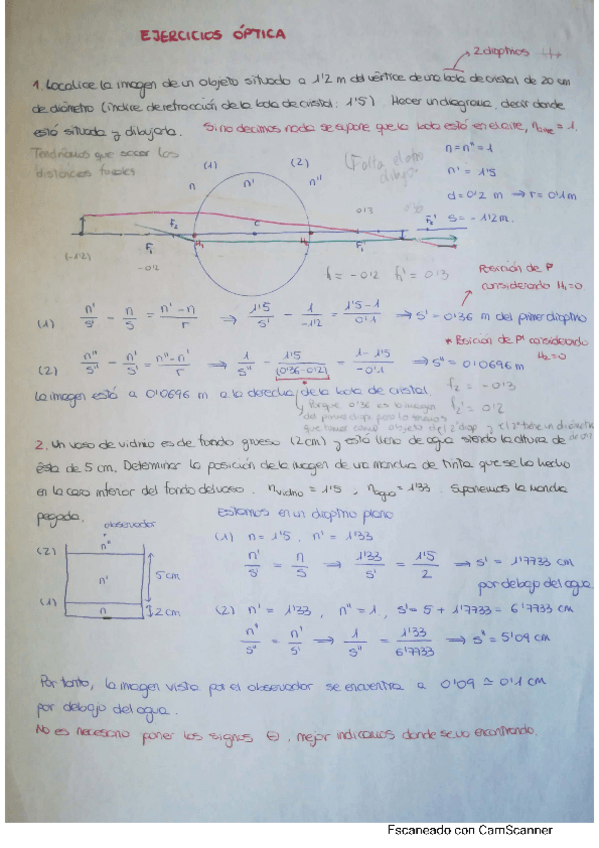 EJERCICIOS ÓPTICA
→ 2 dioptrios
1. Localice la imagen de un objeto situado a 1'2 m del vértice de una bola de cristal de 20 cm
de diámetro (índice de refracción de la bola de cristal: 1'5). Hacer un diagrama, decir donde
está situada y dibujarla. Si no decimos nada se supone que la bola está en el aire, n aire = 1.
Tendríamos que sacar las
distancias focales
(1) (2)
(Falta el otro
dibujo)
n n' n''
n = n'' = 1
n' = 1'5
d = 0'2 m → r = 0'1 m
s = -1'2 m.
F₂ C 0'13 F₂'
F₁ H₁ H₂ F₁'
(-1'2) -0'2
f₁ = -0'2 f₁' = 0'3
Posición de P'
considerado H₁=0
(1) n'/s' - n/s = (n'-n)/r ⇒ 1'5/s' - 1/-1'2 = (1'5-1)/0'1 ⇒ s' = 0'36 m del primer dioptrio
* Posición de P'' considerado
H₂=0
(2) n''/s'' - n'/s' = (n''-n')/r ⇒ 1/s'' - 1'5/(0'36-0'2) = (1-1'5)/-0'1 ⇒ s'' = 0'0696 m
La imagen está a 0'0696 m a la derecha de la bola de cristal.
f₂ = -0'3
f₂' = 0'2
Porque 0'36 es la imagen
del primer diop. pero la tenemos
que tomar como objeto del 2º diop y el 2º tiene un diámetro
2. Un vaso de vidrio es de fondo grueso (2 cm) y está lleno de agua siendo la altura de
ésta de 5 cm. Determinar la posición de la imagen de una mancha de tinta que se ha hecho
en la cara inferior del fondo del vaso. n vidrio = 1'5, n agua = 1'33. Suponemos la mancha
pegada.
Estamos en un dioptrio plano
observador
n''
(2)
n' 5 cm
(1)
n 2 cm
(1) n = 1'5, n' = 1'33
n'/s' = n/s ⇒ 1'33/s' = 1'5/2 ⇒ s' = 1'7733 cm
por debajo del agua.
(2) n' = 1'33, n'' = 1, s' = 5 + 1'7733 = 6'7733 cm
n''/s'' = n'/s' ⇒ 1/s'' = 1'33/6'7733 ⇒ s'' = 5'09 cm
Por tanto, la imagen vista por el observador se encuentra a 0'09 ≅ 0'1 cm
por debajo del agua.
No es necesario poner los signos ⊖, mejor indicamos donde se va encontrando.
Escaneado con CamScanner